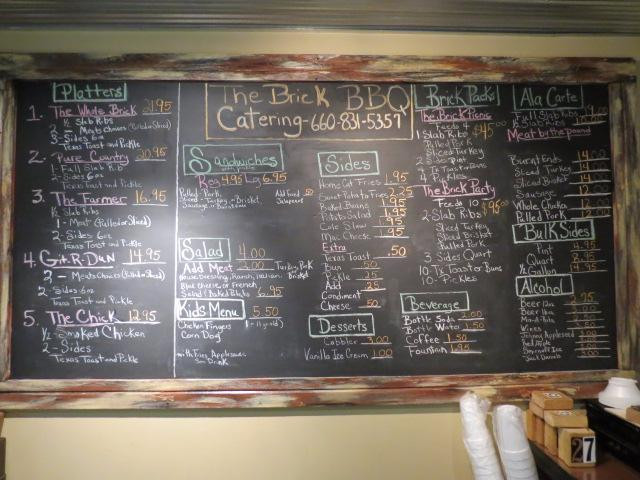 The Brick BBQ
Catering-660-831-5357
Platters
1. The Whole Brick 21.95
½ Slab Ribs
2 Meats Choices (Pulled or Sliced)
3 Sides 6oz
Texas Toast and Pickle
2. Pure Country 20.95
1- Full Slab Rib
2- Sides 6oz
Texas Toast and Pickle
3. The Farmer 16.95
½ Slab Ribs
1- Meat (Pulled or Sliced)
2- Sides 6oz
Texas Toast and Pickle
4. Git-R-Dun 14.95
2- Meats Choices (Pulled or Sliced)
2- Sides 6oz
Texas Toast and Pickle
5. The Chick 12.95
½ Smoked Chicken
2- Sides
Texas Toast and Pickle
Sandwiches
Reg 4.95 Lg 6.95
Pulled Pork
Sliced - Turkey - Brisket,
Sausage
Add Fried .50
Jalapenos
Salad 4.00
Add Meat 3.00 Turkey, Pork
House Dressing, Ranch, Italian, Brisket
Blue Cheese, or French
Salad / Baked Potato 6.95
Kids Menu 5.50
Chicken Fingers
Corn Dog
with Fries, Applesauce
Sm Drink
Sides
Home Cut Fries 1.95
Sweet Potato Fries 2.25
Baked Beans 1.95
Potato Salad 1.95
Cole Slaw 1.95
Mac Cheese 1.95
Extra
Texas Toast .50
Bun .50
Pickle .25
Add .25
Condiment
Cheese .50
Desserts
Cobbler 3.00
Vanilla Ice Cream 1.00
Brick Packs
The Brick Tiens
Feeds 4 $45.00
1 Slab Ribs
Pulled Pork
Sliced Turkey
2 Sides Pint
4 Tx Toast or Buns
4 Pickles
The Brick Party
Feeds 10 $95.00
2- Slab Ribs
Sliced Turkey
Pulled Pork
3 Sides Quart
10- Tx Toast or Buns
10- Pickles
Beverage
Bottle Soda 2.00
Bottle Water 1.50
Coffee 1.50
Fountain 1.95
Ala Carte
Full Slab Ribs
Meat by the pound
Burnt Ends 14.00
Sliced Turkey
Sliced Brisket
Sausage
Whole Chicken
Pulled Pork 12.00
Bulk Sides
Pint 4.95
Quart 8.95
½ Gallon
Alcohol
Beer 12oz 2.75
Beer 16oz
Wines
Johnny Appleseed
Red Apple
Smirnoff Ice
Jack Daniels
27